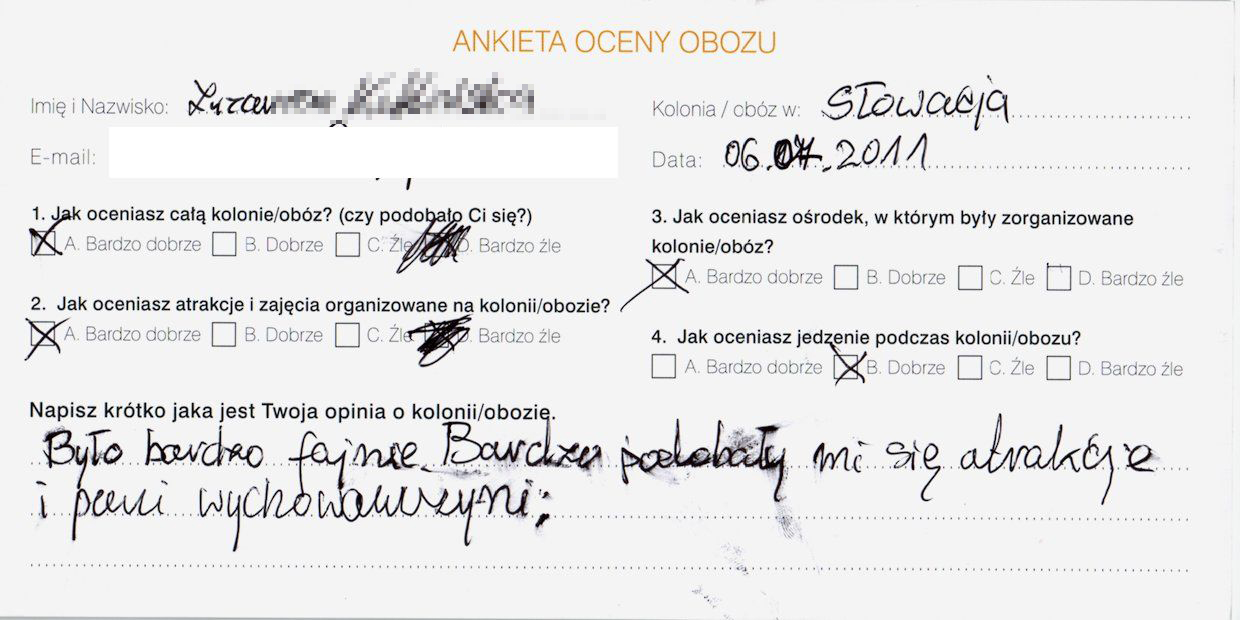 ANKIETA OCENY OBOZU
Imię i Nazwisko:
E-mail:
Kolonia / obóz w: Słowacja
Data: 06.07.2011
1. Jak oceniasz całą kolonie/obóz? (czy podobało Ci się?)
A. Bardzo dobrze B. Dobrze C. Źle D. Bardzo źle
2. Jak oceniasz atrakcje i zajęcia organizowane na kolonii/obozie?
A. Bardzo dobrze B. Dobrze C. Źle D. Bardzo źle
3. Jak oceniasz ośrodek, w którym były zorganizowane
kolonie/obóz?
A. Bardzo dobrze B. Dobrze C. Źle D. Bardzo źle
4. Jak oceniasz jedzenie podczas kolonii/obozu?
A. Bardzo dobrze B. Dobrze C. Źle D. Bardzo źle
Napisz krótko jaka jest Twoja opinia o kolonii/obozie.
Było bardzo fajnie. Bardzo podobały mi się atrakcje
i pani wychowawczyni;